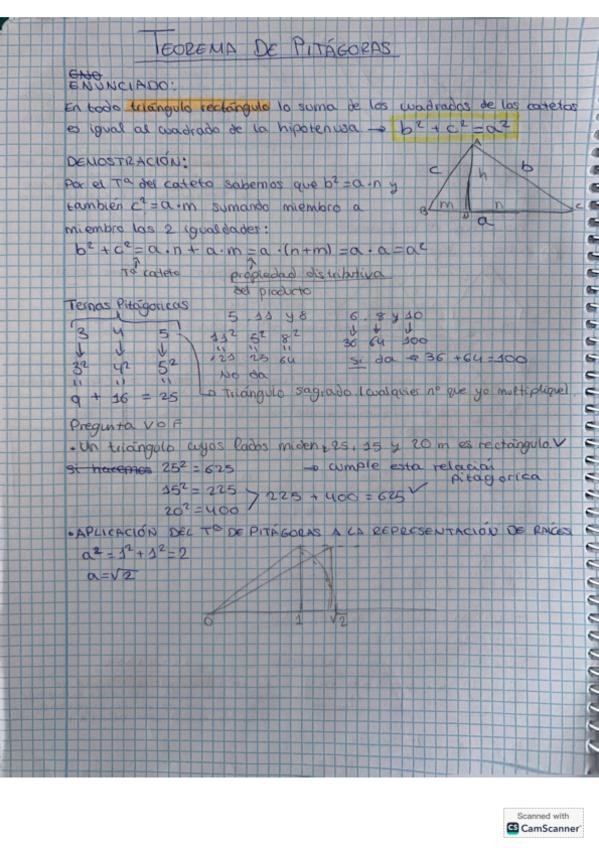 TEOREMA DE PITÁGORAS
ENUNCIADO:
En todo triángulo rectángulo la suma de los cuadrados de los catetos
es igual al cuadrado de la hipotenusa → b² + c² = a²
DEMOSTRACIÓN:
Por el Tª del cateto sabemos que b² = a·n y
también c² = a·m sumando miembro a
miembro las 2 igualdades:
b² + c² = a·n + a·m = a·(n+m) = a·a = a²
Tª cateto propiedad distributiva
del producto
A
c h b
B m n C
D
a
Ternas Pitágoricas
3 4 5
↓ ↓ ↓
3² 4² 5²
" " "
9 + 16 = 25
5, 11 y 8
11² 5² 8²
" " "
121 25 64
No da
6, 8 y 10
↓ ↓ ↓
36 64 100
Si da → 36 + 64 = 100
→ Triángulo sagrado (cualquier nº que yo multiplique).
Pregunta V O F
• Un triángulo cuyos lados miden, 25, 15 y 20 m es rectángulo. V
si hacemos 25² = 625 → cumple esta relación
pitagorica
15² = 225
20² = 400 > 225 + 400 = 625 ✓
• APLICACIÓN DEL Tª DE PITÁGORAS A LA REPRESENTACIÓN DE RAÍCES
a² = 1² + 1² = 2
a = √2
0 1 √2
Scanned with
CS CamScanner